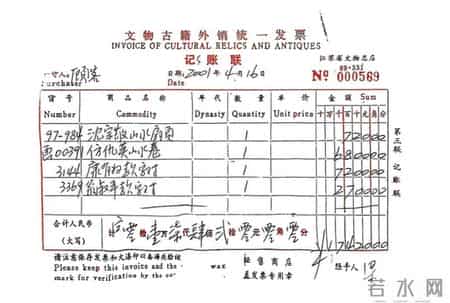 文物古籍外销统一发票
INVOICE OF CULTURAL RELICS AND ANTIQUES
记账联
江苏省文物总店
购货人 顾客 日期:2001年4月16日 № 000569
Purchaser
货号 商品名称 年代 数量 单价 金额 Sum
Number Commodity Dynasty Quantity Unit price 十万千百十元角分
97-984 沈宗敬山水扇面 1 72000
西00391 仿仇英山水卷 1 680000
3144 康有为款字对 1 720000
3369 翁淑平款字对 1 270000
第三联 记账联
合计人民币
(大写) 零拾壹万柒仟肆佰贰拾零元零角零分 ¥1742000
请注意保存发票和火漆印以备海关验证
Please keep this invoice and the
mark for verification by the
销售商店
盖发票专用章
经手人
若水网